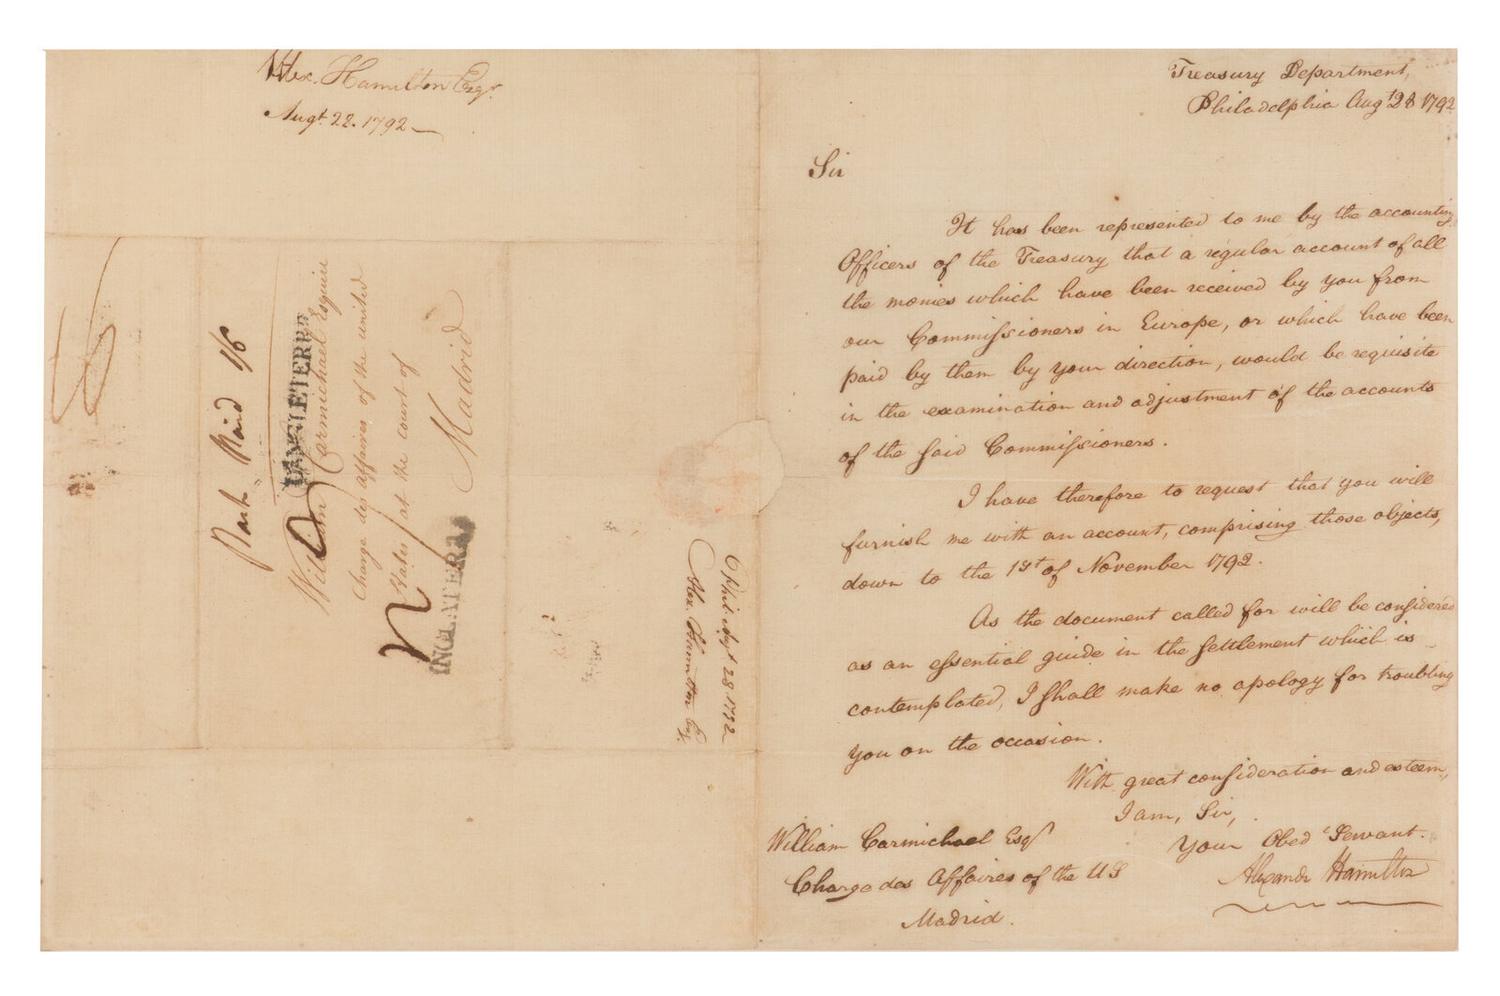 Alex. Hamilton Esqr.
Augt. 22. 1792
Treasury Department,
Philadelphia Augt 28 1792
Sir
It has been represented to me by the accounting
Officers of the Treasury that a regular account of all
the monies which have been received by you from
our Commissioners in Europe, or which have been
paid by them by your direction, would be requisite
in the examination and adjustment of the accounts
of the said Commissioners.
I have therefore to request that you will
furnish me with an account, comprising those objects,
down to the 1st of November 1792.
As the document called for will be considered
as an essential guide in the settlement which is
contemplated, I shall make no apology for troubling
you on the occasion.
With great consideration and esteem,
I am, Sir,
Your Obed Servant.
Alexander Hamilton
William Carmichael Esqr
Charge des Affaires of the US
Madrid.
Paid 1/6
D'ANGLETERRE
William Carmichael Esquire
Charge des affaires of the united
States at the court of
Madrid
INGLATERRA
Phil. Augt 28 1792
Alex. Hamilton Esqr